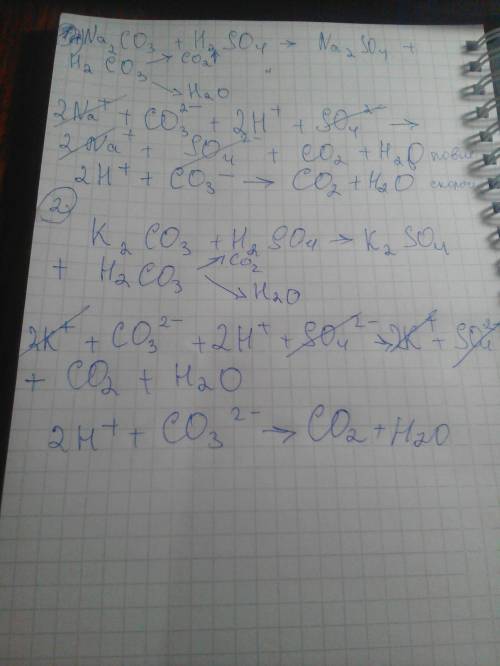 Na₂CO₃ + H₂SO₄ → Na₂SO₄ +
H₂CO₃ → CO₂↑
→ H₂O
2Na⁺ + CO₃²⁻ + 2H⁺ + SO₄²⁻ →
2Na⁺ + SO₄²⁻ + CO₂ + H₂O
2H⁺ + CO₃⁻ → CO₂ + H₂O
2.
K₂CO₃ + H₂SO₄ → K₂SO₄
+ H₂CO₃ → CO₂
→ H₂O
2K⁺ + CO₃²⁻ + 2H⁺ + SO₄²⁻ → 2K⁺ + SO₄²⁻
+ CO₂ + H₂O
2H⁺ + CO₃²⁻ → CO₂ + H₂O